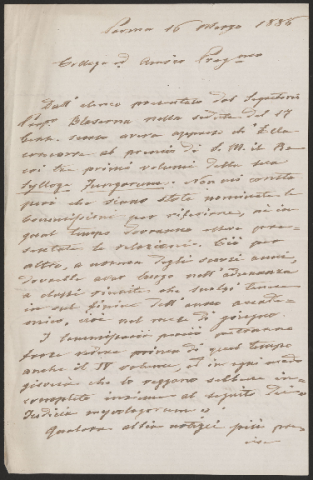 Parma 16 Marzo 1886
Collega ed Amico Preg.mo
Dall'elenco presentato dal Segretario
Prof. Blaserna nella seduta del 14
corr. scorso avevo appreso che Ella
concorre al premio di S. M. il Re
coi tre primi volumi della sua
Sylloge Fungorum. Non mi consta
però che siano state nominate le
Commissioni per riferirne, nè in
qual tempo dovranno essere pre-
sentate le relazioni. Ciò per
altro, a norma degli scorsi anni,
dovrebbe aver luogo nell'adunanza
a classi riunite che suolsi tenere
in sul finire dell'anno accade-
mico, cioè nel mese di giugno.
I Commissarj perciò potranno
forse vedere prima di quel tempo
anche il IV volume, ed in ogni modo
gioverà che lo veggano sebbene in-
completo insieme al seguito dei
mycologicum.
Qualora abbia notizie più pre-
cise